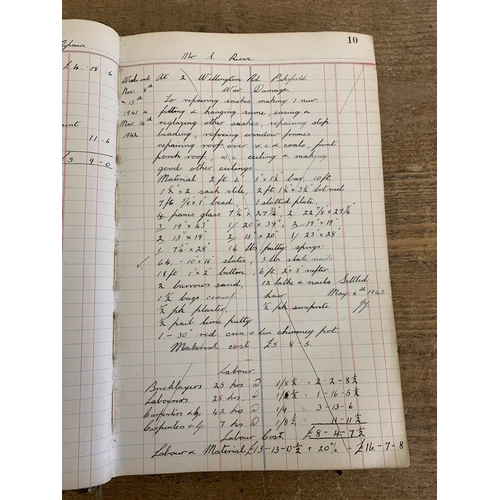 Repair
£4 - 18 - 6
11 - 6
£5 9 - 0
10
Mr S Reeve.
Week end At 2 Wellington Rd. Pakefield.
Nov. 8th War Damage.
" 15th To repairing sashes making 1 new
1941 & fitting & hanging same, easing &
Mar. 14th reglazing other sashes, repairing stop
1942 beading, repairing window frames
repairing roof over w.c & coals, front
porch roof, w.c ceiling & making
good other ceilings
Material 2 ft 6" 1" x 1½" bar, 10 ft
1½" x 2" sash stile, 2 ft 1½" x 3½" bot rail
7 ft ⅝" x 1" bead, 1 slotted plate,
4 panes glass 7¼" x 27¼", 2 22⅞" x 27¼"
3 19" x 43" 1/ 20" x 39", 2 19" x 19"
2 13" x 19" 2 15" x 20" 1/ 23" x 28"
1 7¼" x 28" 14 lbs putty, sprigs
64 - 10" x 16" slates, 3 lbs slate nails
18 ft 1" x 2" batten, 6 ft 2" x 3" rafter
2 barrows sand, 12 laths & nails Settled
1½ bags cement, hair May 4th 1942.
½ pk plaster, ½ pk sirapite
½ pail lime putty
1 - 30" red chimney pot.
Material cost £5 - 8 - 5.
Labour.
Bricklayers 25 hrs @ 1/8½ = 2 - 2 - 8½
Labourers 25 hrs @ 1/5½ = 1 - 16 - 5½
Carpenters 42 hrs @ 1/9 = 3 - 13 - 6
Carpenters 7 hrs @ 1/8½ = 11 - 11½
Labour Cost. £8 - 4 - 7½
Labour & Material £13 - 13 - 0½ + 20% = £16 - 7 - 8